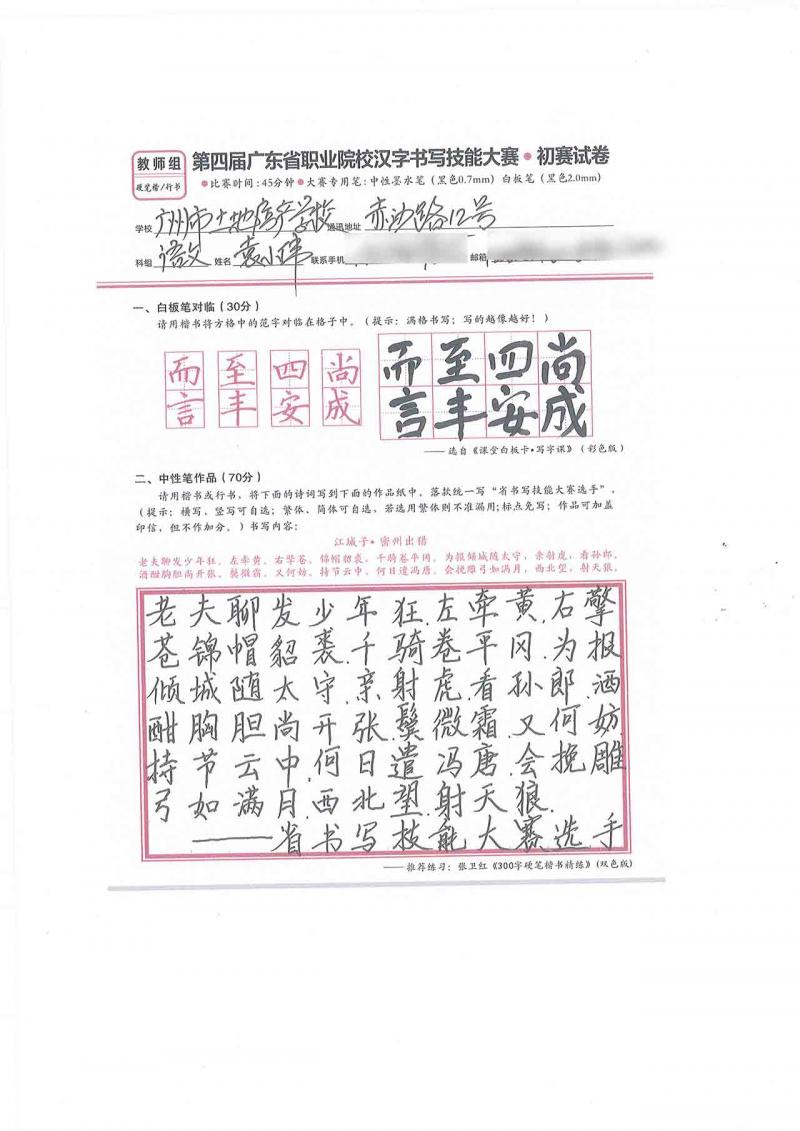 教师组
硬笔楷/行书
第四届广东省职业院校汉字书写技能大赛•初赛试卷
•比赛时间:45分钟•大赛专用笔:中性墨水笔(黑色0.7mm)白板笔(黑色2.0mm)
学校 广州市土地房产学校 通讯地址 赤沙路12号
科组 语文 姓名 袁小玮 联系手机 邮箱
一、白板笔对临(30分)
请用楷书将方格中的范字对临在格子中。(提示:满格书写;写的越像越好!)
而 至 四 尚 而 至 四 尚
言 丰 安 成 言 丰 安 成
——选自《课堂白板卡•写字课》(彩色版)
二、中性笔作品(70分)
请用楷书或行书,将下面的诗词写到下面的作品纸中。落款统一写“省书写技能大赛选手”。
(提示:横写,竖写可自选;繁体、简体可自选,若选用繁体则不准漏用;标点免写;作品可加盖
印信,但不作加分。)书写内容:
江城子•密州出猎
老夫聊发少年狂。左牵黄。右擎苍。锦帽貂裘。千骑卷平冈。为报倾城随太守,亲射虎,看孙郎。
酒酣胸胆尚开张。鬓微霜。又何妨。持节云中。何日遣冯唐。会挽雕弓如满月,西北望,射天狼。
老夫聊发少年狂左牵黄右擎
苍锦帽貂裘千骑卷平冈为报
倾城随太守亲射虎看孙郎酒
酣胸胆尚开张鬓微霜又何妨
持节云中何日遣冯唐会挽雕
弓如满月西北望射天狼
——省书写技能大赛选手
——推荐练习:张卫红《300字硬笔楷书精练》(双色版)